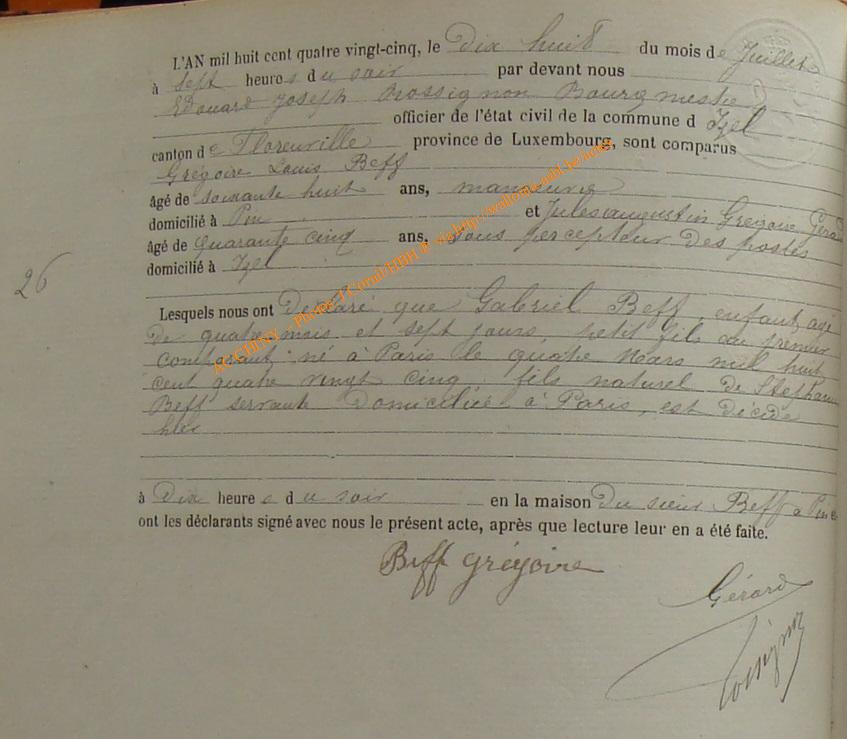 L'AN mil huit cent quatre vingt-cinq, le Dix huit du mois de Juillet
à Sept heures du soir par devant nous
Edouard Joseph Rossignon Bourgmestre
officier de l'état civil de la commune d Izel
canton de Florenville province de Luxembourg, sont comparus
Grégoire Louis Beff
âgé de soixante huit ans, manœuvre
domicilié à Pin et Jules augustin Grégoire Gérard
âgé de quarante cinq ans, Sous percepteur Des postes
domicilié à Izel
26
Lesquels nous ont Déclaré que Gabriel Beff, enfant, agé
De quatre mois et sept jours, petit fils du premier
comparant né à Paris le quatre Mars mil huit
cent quatre vingt cinq, fils naturel de Stéphanie
Beff servante Domiciliée à Paris, est décédé
hier
à Dix heures du soir en la maison Du sieur Beff à Pin et
ont les déclarants signé avec nous le présent acte, après que lecture leur en a été faite.
Beff Grégoire
Gérard
Rossignon